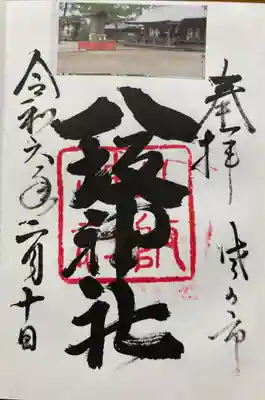 奉拝
八坂神社
令和六年二月十日